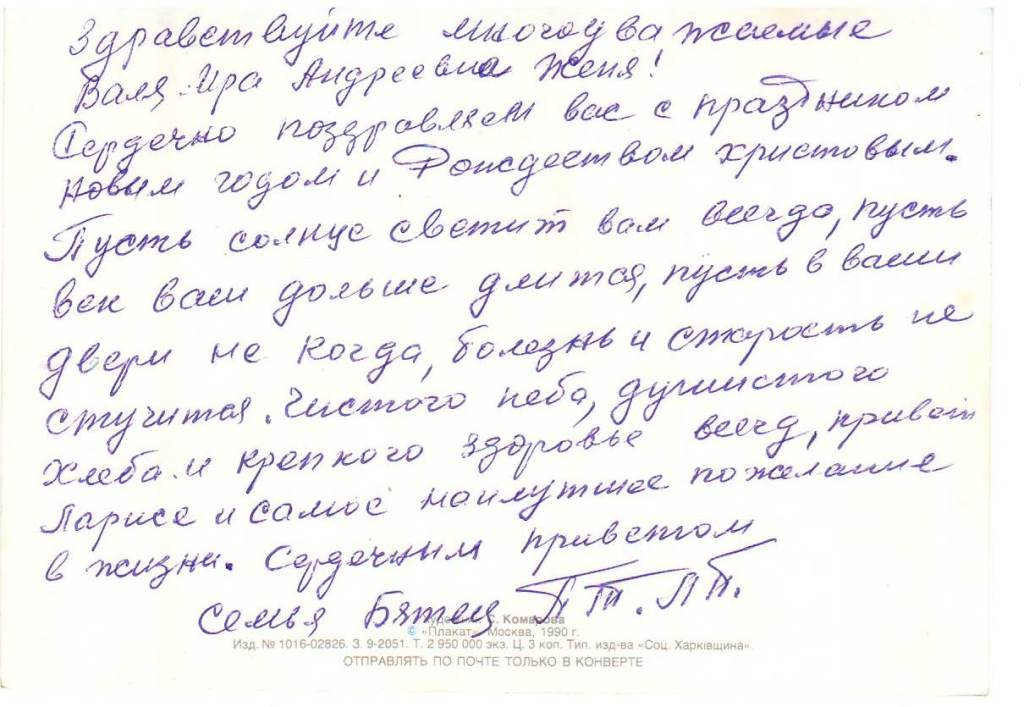 Здравствуйте многоуважаемые
Валя Ира Андреевна Женя!
Сердечно поздравляем вас с праздником
новым годом и Рождеством христовым.
Пусть солнце светит вам всегда, пусть
век ваш дольше длится, пусть в ваши
двери не когда, болезнь и старость не
стучится. Чистого неба, душистого
хлеба и крепкого здоровье всегд, привет
Ларисе и самое наилутшее пожелание
в жизни. Сердечным приветом
семья П.П. Л.П.
С. Комарова
© «Плакат» Москва, 1990 г.
Изд. № 1016-02826. З. 9-2051. Т. 2 950 000 экз. Ц. 3 коп. Тип. изд-ва «Соц. Харкiвщина».
ОТПРАВЛЯТЬ ПО ПОЧТЕ ТОЛЬКО В КОНВЕРТЕ